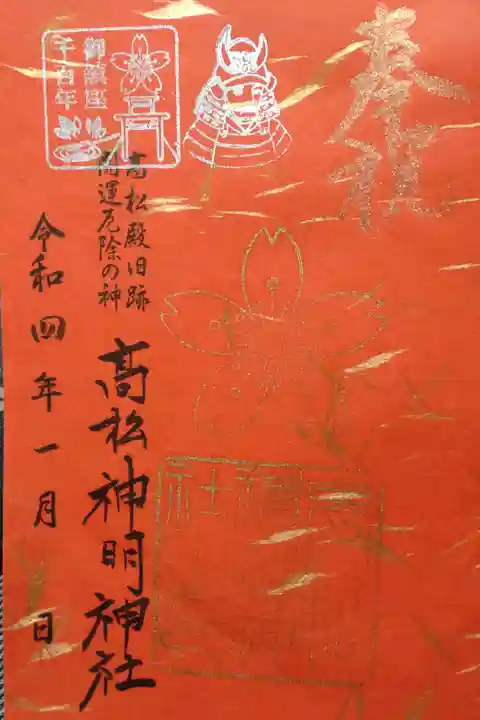 奉拝
御鎮座
千百年
高松殿旧跡
開運厄除の神
髙松神明神社
令和四年一月 日